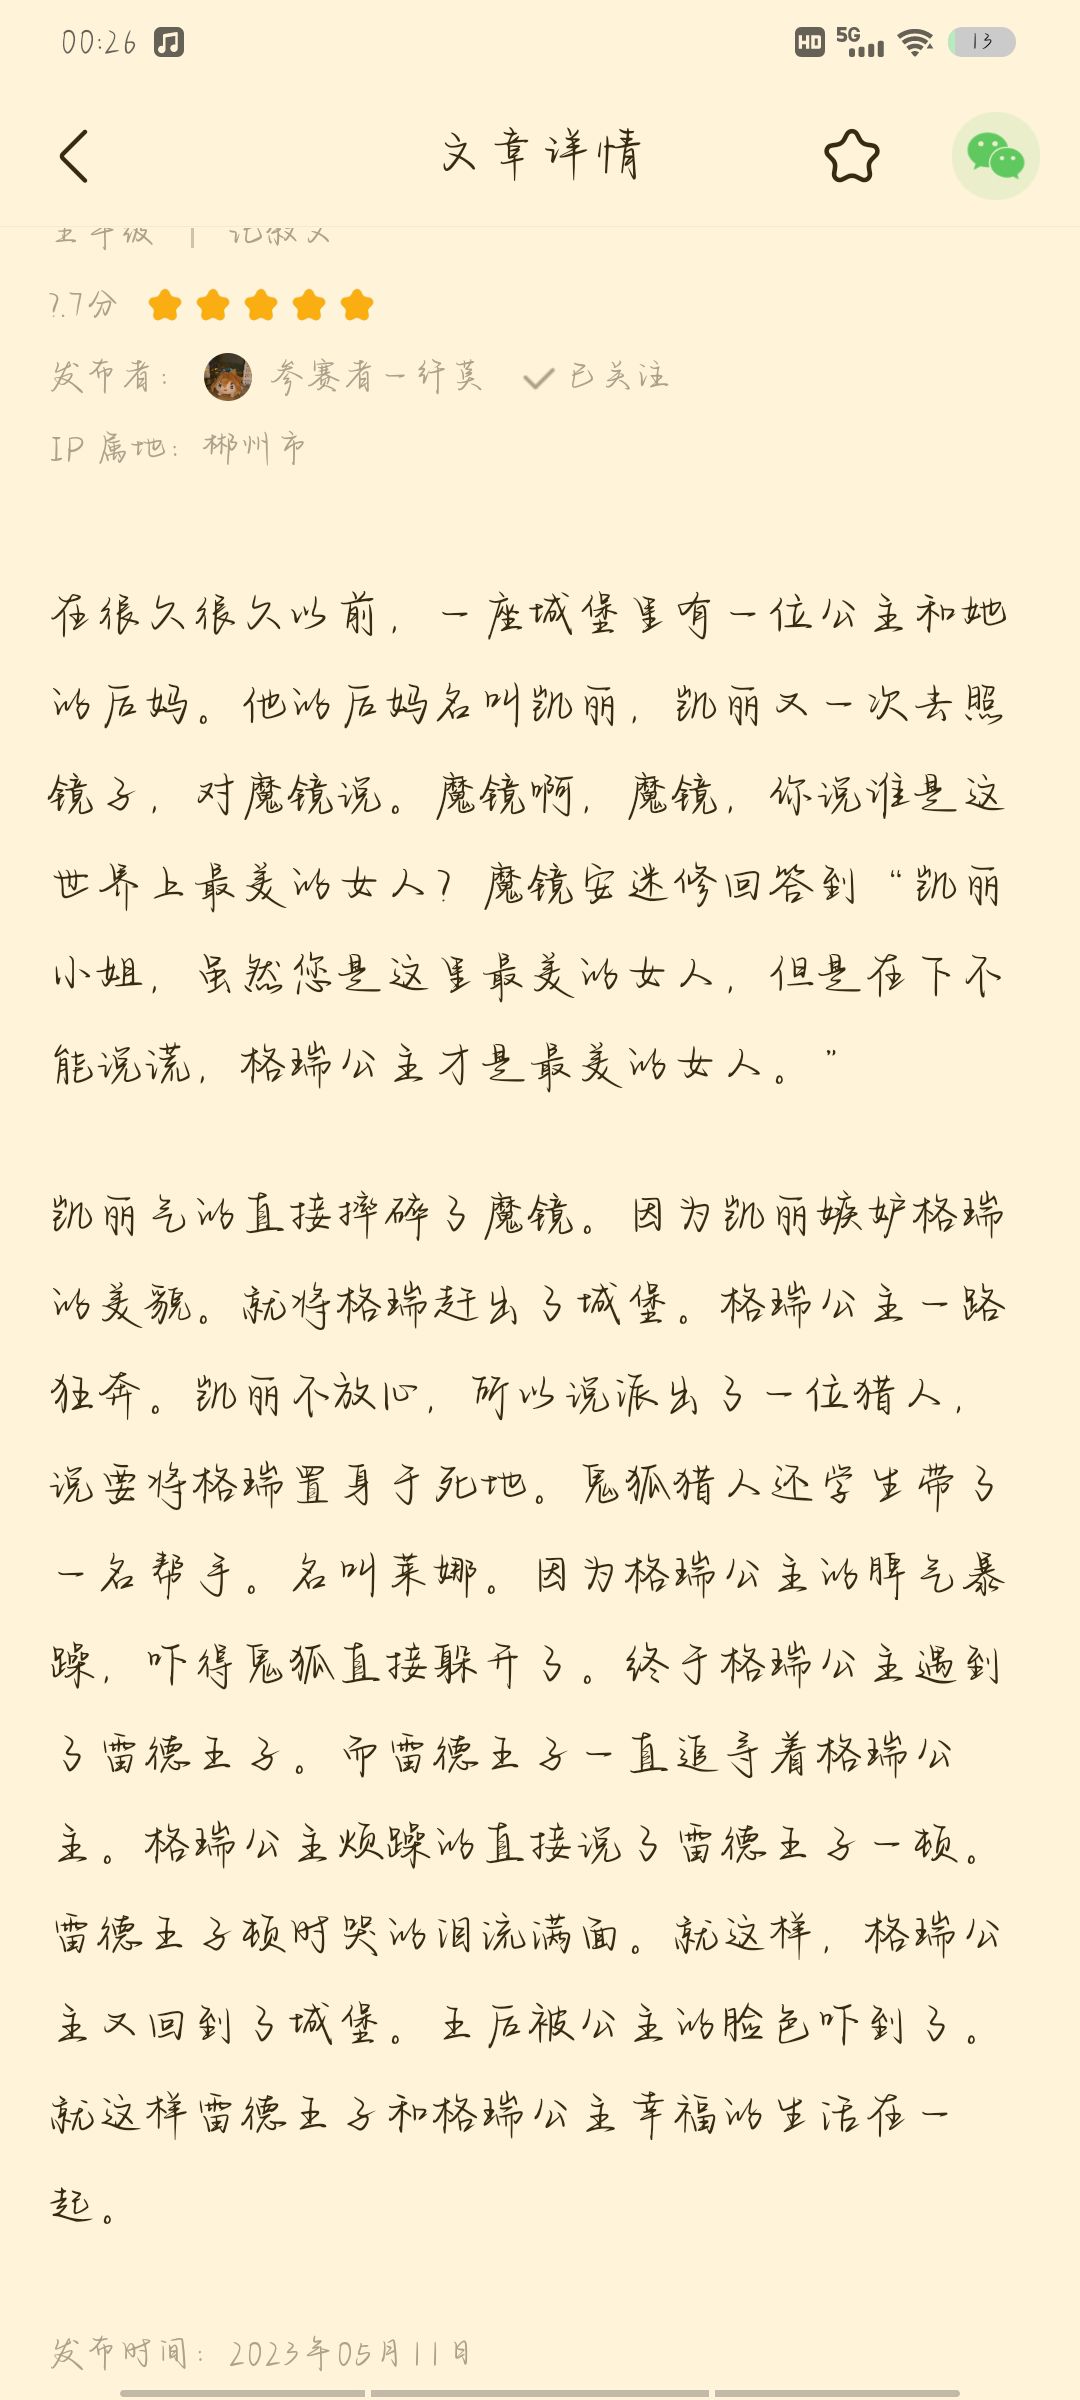 00:26 HD 5G 13
文章详情
五年级 | 记叙文
?.7分
发布者： 参赛者一纤莫 已关注
IP 属地： 郴州市
在很久很久以前，一座城堡里有一位公主和她
的后妈。他的后妈名叫凯丽，凯丽又一次去照
镜子，对魔镜说。魔镜啊，魔镜，你说谁是这
世界上最美的女人？魔镜安迷修回答到“凯丽
小姐，虽然您是这里最美的女人，但是在下不
能说谎，格瑞公主才是最美的女人。”
凯丽气的直接摔碎了魔镜。因为凯丽嫉妒格瑞
的美貌。就将格瑞赶出了城堡。格瑞公主一路
狂奔。凯丽不放心，所以说派出了一位猎人，
说要将格瑞置身于死地。鬼狐猎人还学生带了
一名帮手。名叫莱娜。因为格瑞公主的脾气暴
躁，吓得鬼狐直接躲开了。终于格瑞公主遇到
了雷德王子。而雷德王子一直追寻着格瑞公
主。格瑞公主烦躁的直接说了雷德王子一顿。
雷德王子顿时哭的泪流满面。就这样，格瑞公
主又回到了城堡。王后被公主的脸色吓到了。
就这样雷德王子和格瑞公主幸福的生活在一
起。
发布时间：2023年05月11日